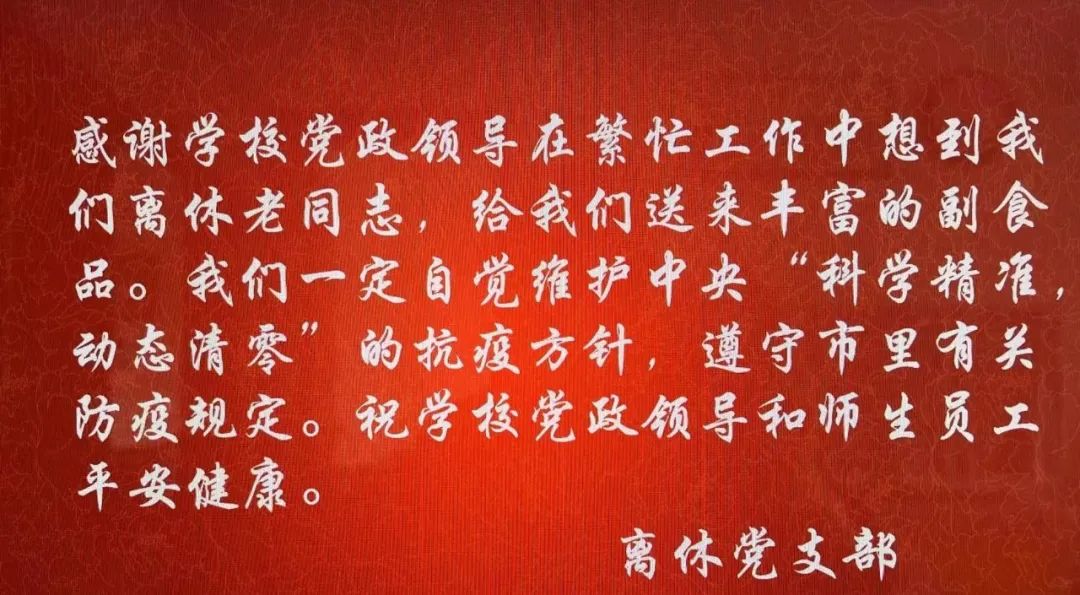 感谢学校党政领导在繁忙工作中想到我
们离休老同志，给我们送来丰富的副食
品。我们一定自觉维护中央“科学精准，
动态清零”的抗疫方针，遵守市里有关
防疫规定。祝学校党政领导和师生员工
平安健康。
离休党支部